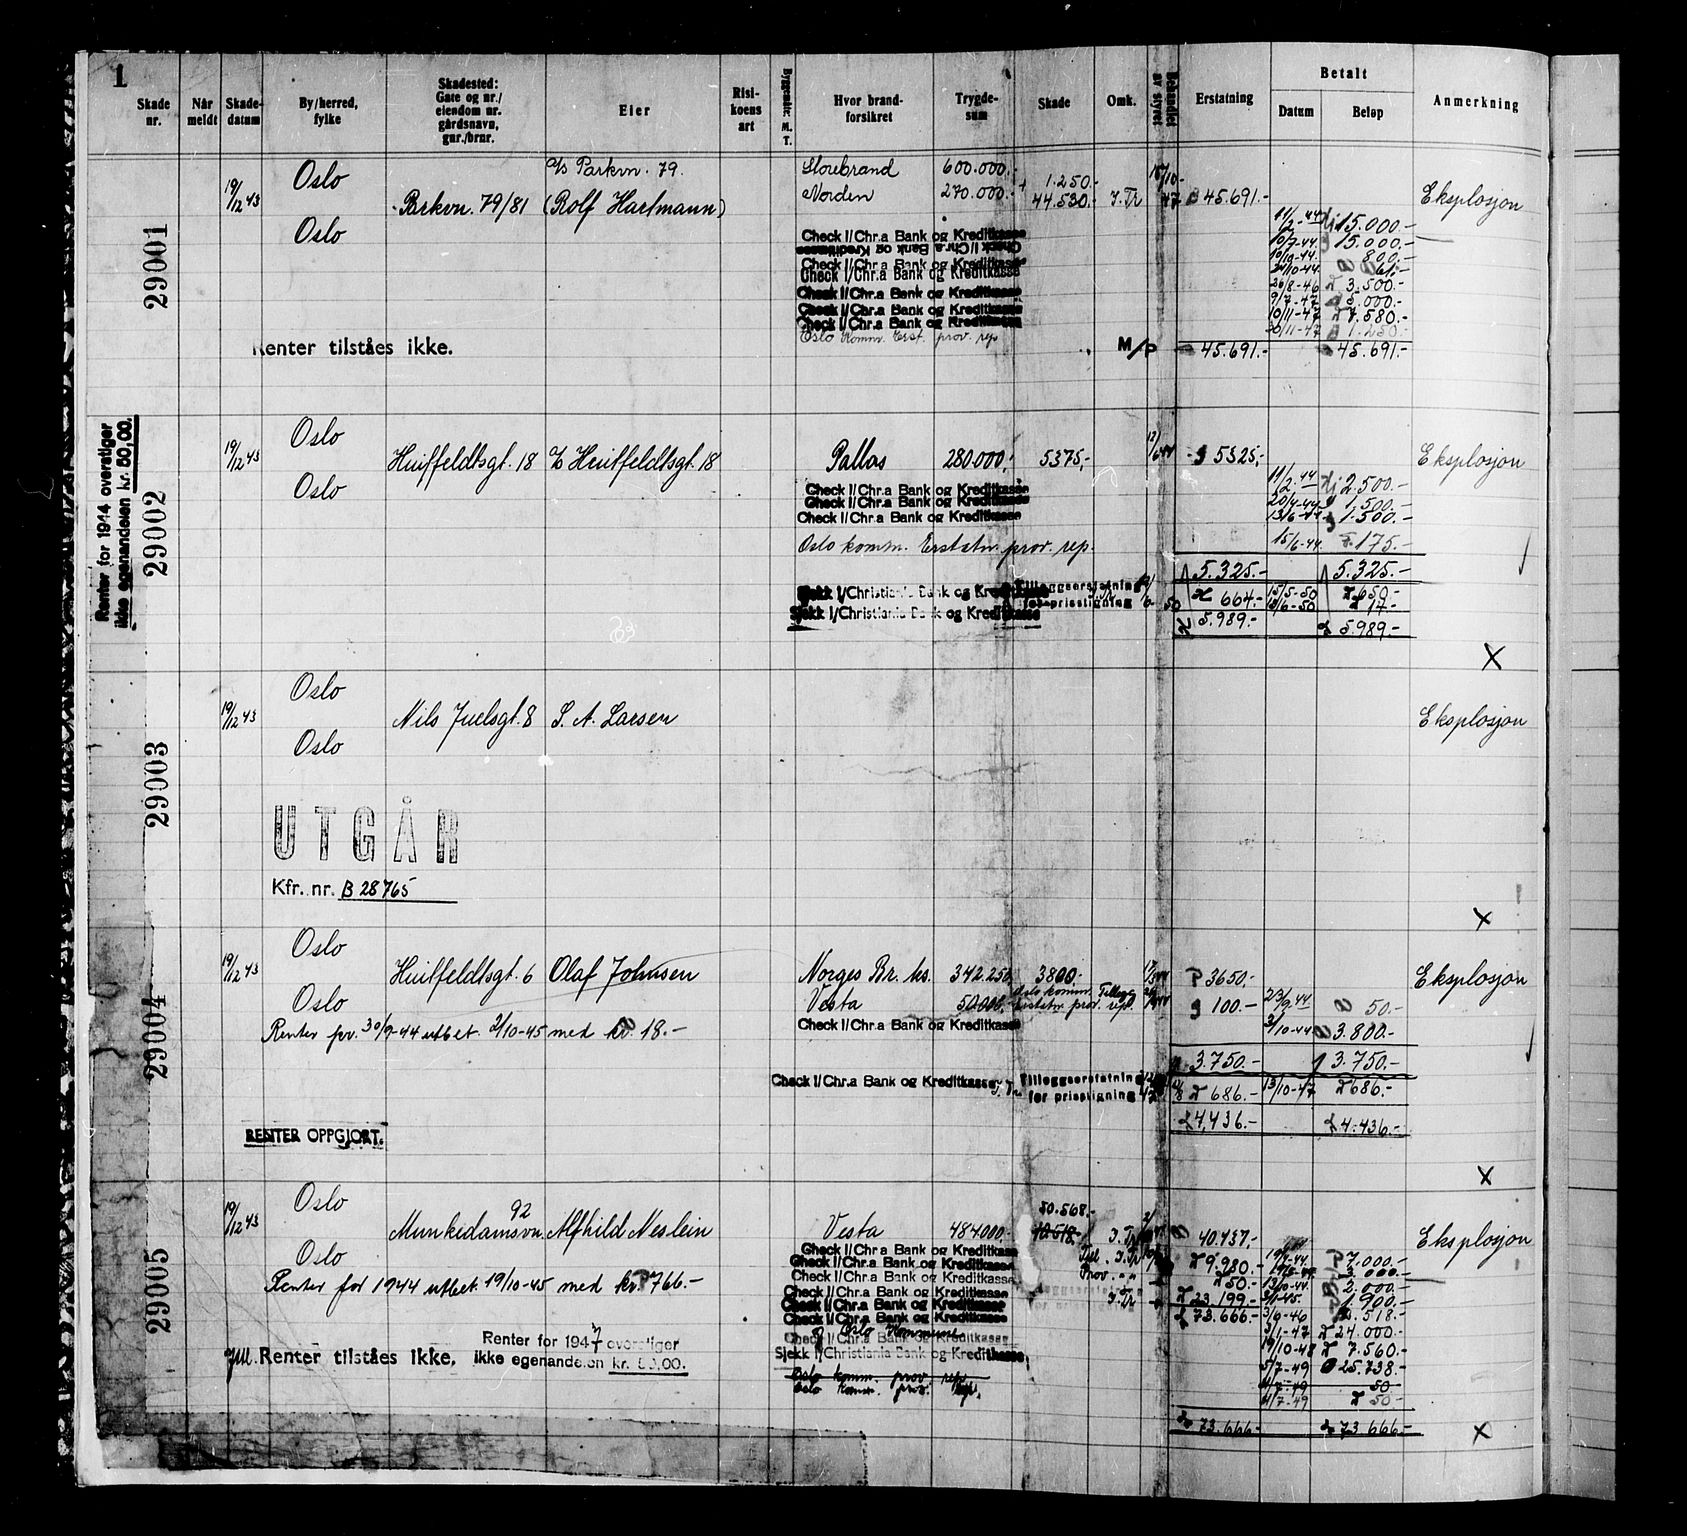 1
Skade nr.
Når meldt
Skade-datum
By/herred, fylke
Skadested: Gate og nr./ eiendom nr. gårdsnavn, gnr./brnr.
Eier
Risi-koens art
Bygealtr. M. T.
Hvor brand-forsikret
Trygde-sum
Skade
Omk.
Behandlet av styret
Erstatning
Betalt
Datum
Beløp
Anmerkning
29001
19/12 43
Oslo
Oslo
Parkvn. 79/81
A/s Parkvn. 79.
(Rolf Hartmann)
Storebrand 600.000.-
Norden 270.000.-
1.250.-
44.530.- J.Tr
45.691.-
Eksplosjon
Check I/Chr.a Bank og Kreditkasse
Check I/Chr.a Bank og Kreditkasse
Check I/Chr.a Bank og Kreditkasse
Check I/Chr.a Bank og Kreditkasse
Check I/Chr.a Bank og Kreditkasse
Check I/Chr.a Bank og Kreditkasse
Check I/Chr.a Bank og Kreditkasse
Oslo Komm. Erst. prov. rep
11/2-44 15.000.-
10/7-44 15.000.-
10/10-44 800.-
24/10-44 61.-
26/8-46 3.500.-
9/7-47
10/11-47 7.580.-
20/11-47 1.250.-
Renter tilståes ikke.
M/P
45.691.- 45.691.-
Renter for 1944 overstiger
ikke egenandelen kr. 50,00.
29002
19/12 43
Oslo
Oslo
Huitfeldtsgt. 18
A/s Huitfeldtsgt. 18
Pallas 280.000,- 5375,-
12/6 44
5325,-
Eksplosjon
Check I/Chr.a Bank og Kreditkasse
Check I/Chr.a Bank og Kreditkasse
Check I/Chr.a Bank og Kreditkasse
Oslo komm. Erststn. prov. rep.
11/2-44 2.500.-
20/4-44 1.500.-
13/6-44 1.500.-
15/6-44. 175.-
5.325.- 5.325.-
Sjekk I/Christiania Bank og Kreditkasse
Sjekk I/Christiania Bank og Kreditkasse
Tilleggserstatning
for prisstigning
664.- 15/5-50 650.-
6-50 17.-
5.989.- 5.989.-
X
29003
19/12 43
Oslo
Oslo
Nils Juelsgt. 8
S. A. Larsen
Eksplosjon
UTGÅR
Kfr. nr. B 28765
X
29004
19/12 43
Oslo
Oslo
Huitfeldtsgt. 6
Olaf Johnsen
Norges Br. ks. 342.250,- 3800.-
Vesta 50.000,-
Oslo komm. Tillegg
Erststn prov. rep.
3650.-
100.-
Eksplosjon
Check I/Chr.a Bank og Kreditkasse
23/9-44 50.-
2/10-44 3.800.-
Renter pr. 30/9-44 utbet. 2/10-45 med kr. 18.-
3.750.- 3.750.-
Check I/Chr.a Bank og Kreditkasse
Tilleggserstatning
for prisstigning
686.- 13/10-47 686.-
4,436.- 4.436.-
RENTER OPPGJORT.
X
29005
19/12 43
Oslo
Oslo
Munkedamsvn. 92
Alfhild Neslein
Vesta 484.000.-
50.568.-
J.Tr
40.437,-
Eksplosjon
Check I/Chr.a Bank og Kreditkasse
Check I/Chr.a Bank og Kreditkasse
Check I/Chr.a Bank og Kreditkasse
Check I/Chr.a Bank og Kreditkasse
Check I/Chr.a Bank og Kreditkasse
Check I/Chr.a Bank og Kreditkasse
Oslo Kommune
Check I/Chr.a Bank og Kreditkasse
Sjekk I/Christiania Bank og Kreditkasse
Oslo komm. prov. rep.
Oslo komm. prov. rep.
9.980.-
50.-
23.199.-
73.666.-
7.000.-
13/10-44. 2.000.-
1.900.-
3/6-46
3/1-47 24.000.-
19/10-48 7.560.-
5/7-49 25.738.-
4/7-49 50
4/7-49 50-
Renter for 1944 utbet. 19/10-45 med kr. 766.-
Renter for 1947 overstiger
ikke egenandelen kr. 50,00.
Renter tilståes ikke.
73.666.- 73.666.-
X